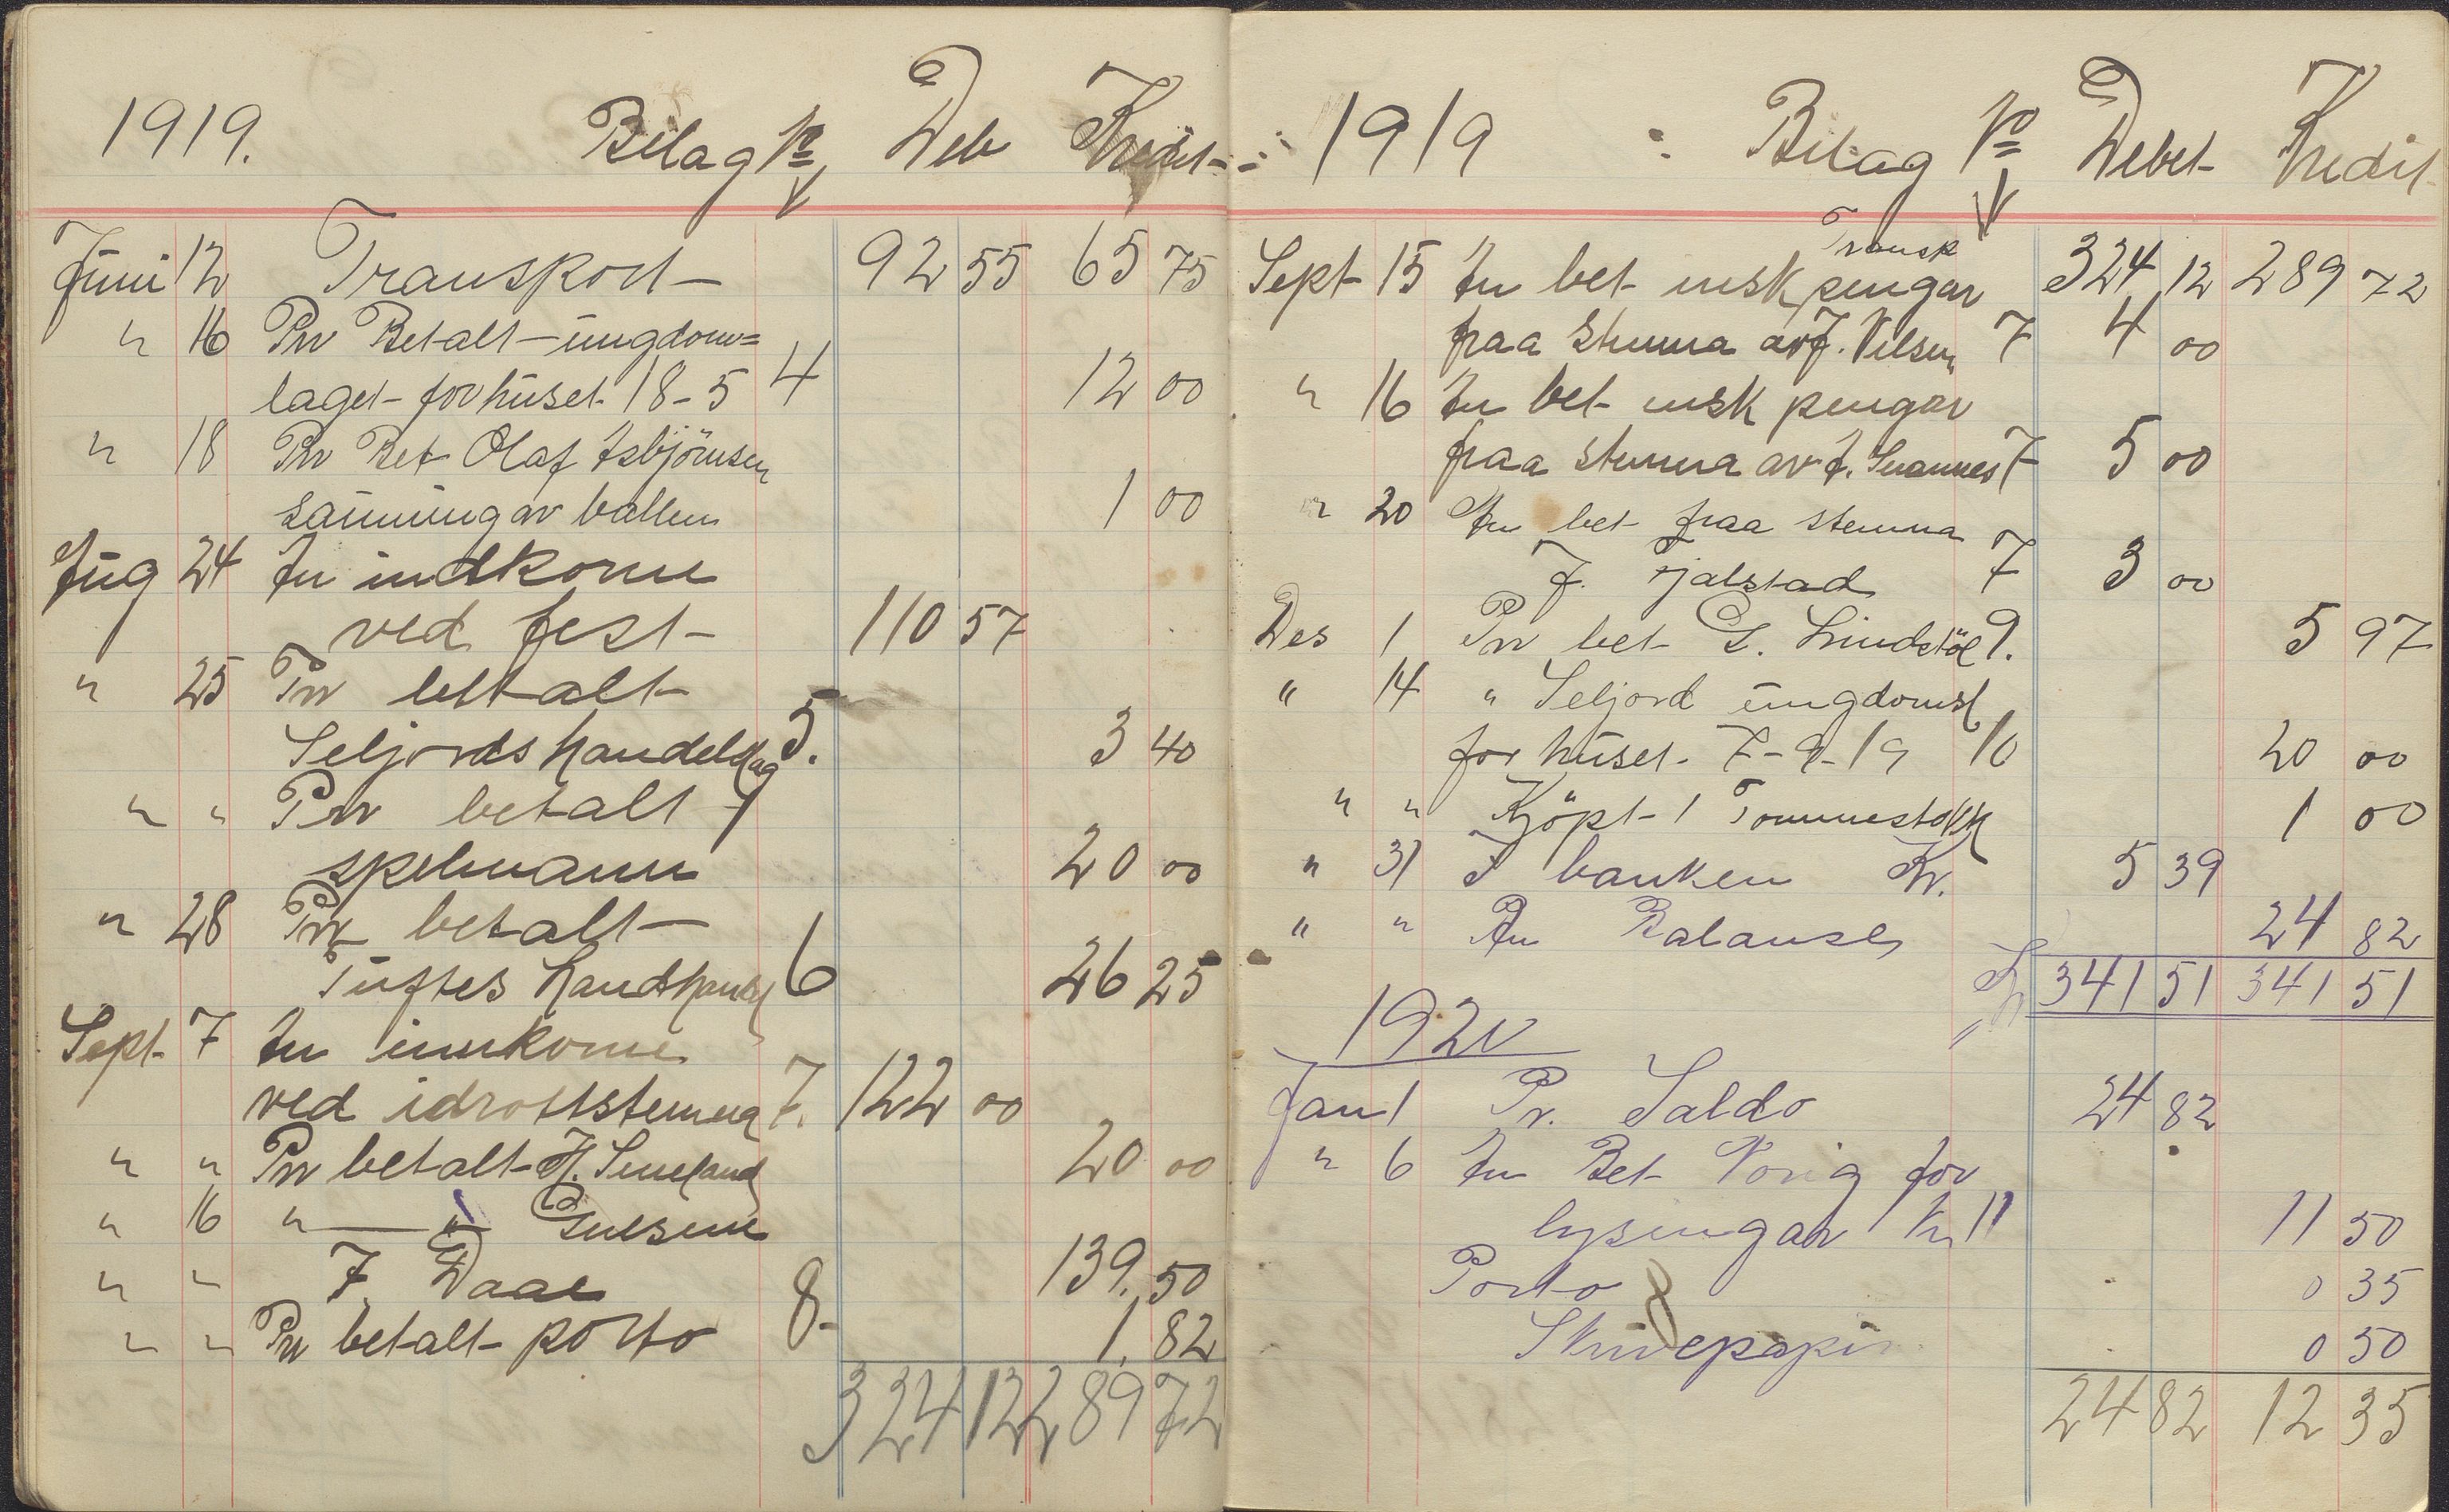 1919. Bilag No Deb Kredit
Juni 12 Transport 92 55 65 75
" 16 Pr Betalt ungdom=
laget for huset 18-5 4 12 00
" 18 Pr Bet Olaf Asbjörnsen
saumingav ballen 1 00
Aug 24 An indkome
ved fest 110 57
" 25 Pr betalt
Seljords handelslag 5. 3 40
" " Pr betalt
spelmann 20 00
" 28 Pr betalt
Tuftes Landhandel 6 26 25
Sept. 7 An innkome
ved idrottstemna 7. 122 00
" " Pr betalt H. 20 00
" 16 " "
" " F. Daae 8 139.50
" " Pr betalt porto 1.82
324 12 289 72
1919 Bilag No Debet Kredit
Transp
Sept 15 An bet insk pengar 324 12 289 72
fraa Stemna av J. Nilsen 7 4 00
" 16 An bet insk pengar
fraa stemna av A. Svannes 7 5 00
" 20 An bet fraa stemna
J. Fjalstad 7 3 00
Des 1 Pr bet G. Lindstöl 9. 5 97
" 14 " Seljord ungdomsl
for huset 7-9-19 10 20 00
" " Kjöpt 1 Tommestokk 1 00
" 31 I banken Kr. 5 39
" " An Balanse 24 82
Kr 341 51 341 51
1920
Jan 1 Pr. Saldo 24 82
" 6 An Bet Norig for
lysingar Kr 11 11 50
Porto 0 35
Skrivepapir 0 50
24 82 12 35